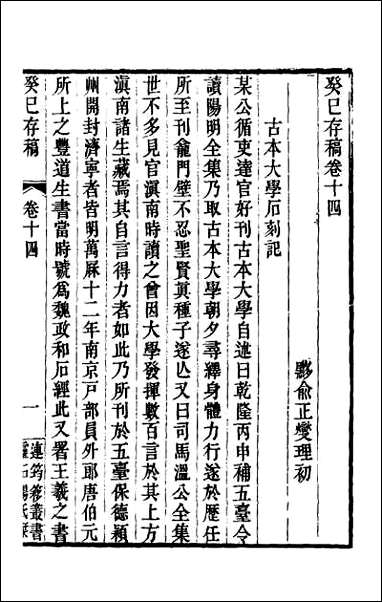 癸巳存稿卷十四
黟俞正燮理初
古本大學石刻記
某公循吏達官好刊古本大學自述曰乾隆丙申補五臺令
讀陽明全集乃取古本大學朝夕尋繹身體力行遂於歷任
所至刊龕門壁不忍聖賢真種子遂亾又曰司馬溫公全集
世不多見官滇南時讀之曾因大學發揮數百言於其上方
滇南諸生藏焉其自言得力者如此乃所刊於五臺保德潁
州開封濟寧者皆明萬厤十二年南京戸部員外郎唐伯元
所上之豐道生書當時號爲魏政和石經此又署王羲之書
癸巳存稿
卷十四
一
連筠簃叢書
靈石楊氏栞